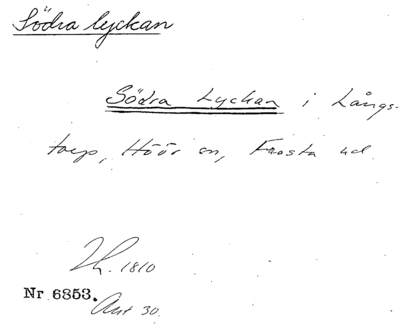 Södra lyckan
Södra Lyckan i Långs-
torp, Höör sn, Frosta hd.
1810
Nr 6853.
Ant 30.